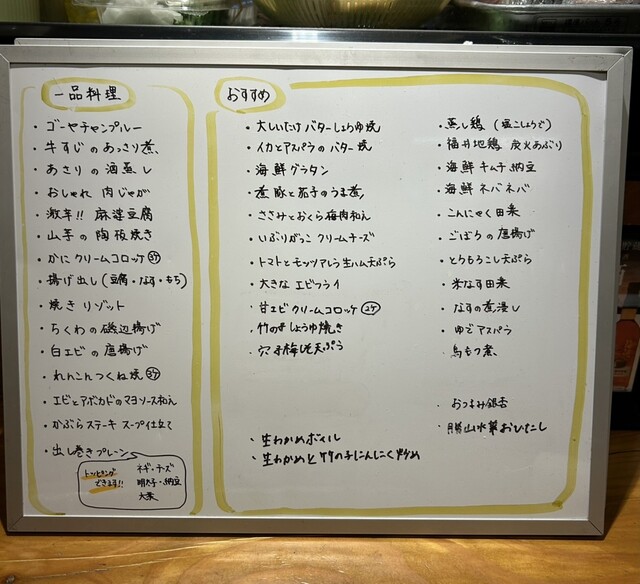 一品料理
・ゴーヤチャンプルー
・牛すじのあっさり煮
・あさりの酒蒸し
・おしゃれ 肉じゃが
・激辛!! 麻婆豆腐
・山芋の陶板焼き
・かにクリームコロッケ 3ケ
・揚げ出し(豆腐・なす・もち)
・焼きリゾット
・ちくわの磯辺揚げ
・白エビの唐揚げ
・れんこんつくね焼 3ケ
・エビとアボカドのマヨソース和え
・かぶらステーキ スープ仕立て
・出し巻きプレーン
トッピングできます!!
ネギ・チーズ
明太子・納豆
大葉
おすすめ
・大しいたけ バターしょうゆ焼
・イカとアスパラのバター焼
・海鮮グラタン
・煮豚と茄子のうま煮
・ささみとおくら梅肉和え
・いぶりがっこ クリームチーズ
・トマトとモッツアレラ生ハム天ぷら
・大きな エビフライ
・甘エビクリームコロッケ 2ケ
・竹の子しょうゆ焼き
・穴子梅しそ天ぷら
・生わかめボイル
・生わかめと竹の子にんにく炒め
・蒸し鶏(塩こしょうで)
・福井地鶏 炭火あぶり
・海鮮キムチ納豆
・海鮮ネバネバ
・こんにゃく田楽
・ごぼうの唐揚げ
・とうもろこし天ぷら
・米なす田楽
・なすの煮浸し
・ゆでアスパラ
鳥もつ煮
・おつまみ銀杏
・勝山水菜おひたし